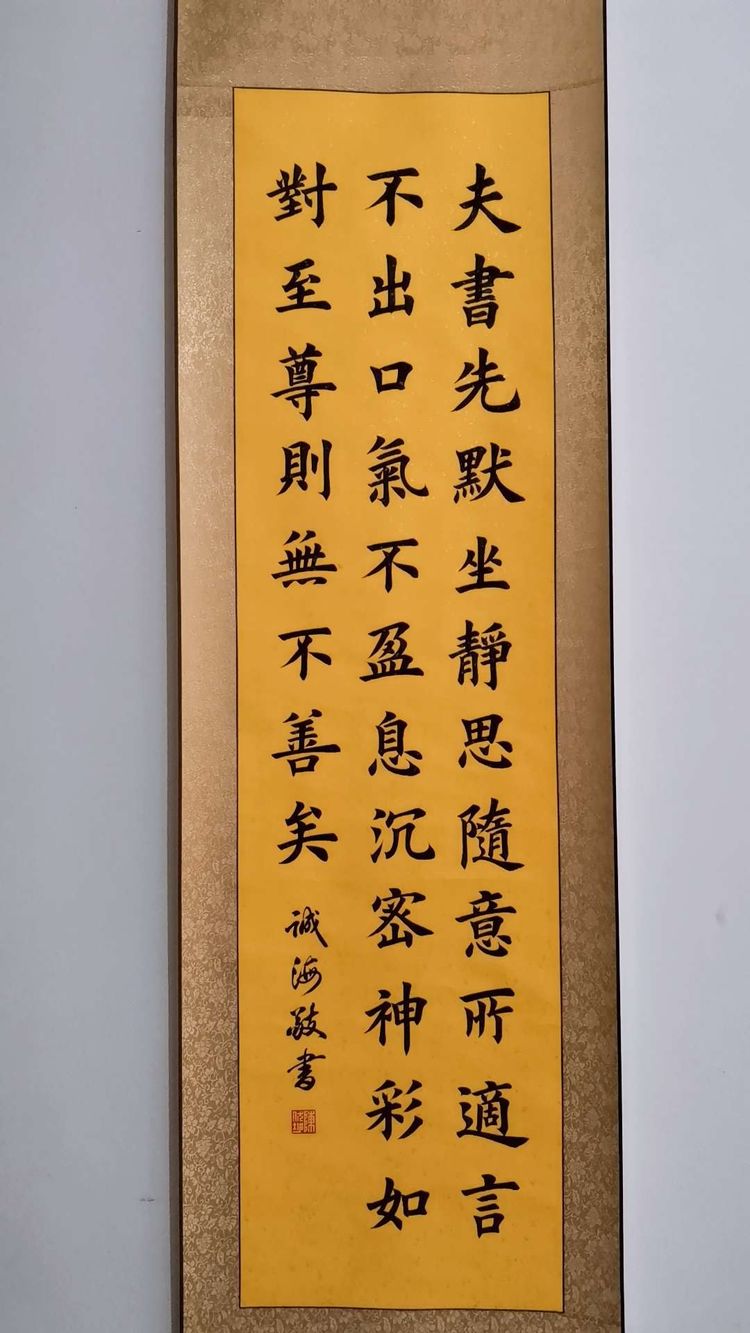 夫書先默坐靜思隨意所適言
不出口氣不盈息沉密神彩如
對至尊則無不善矣
诚海敬書